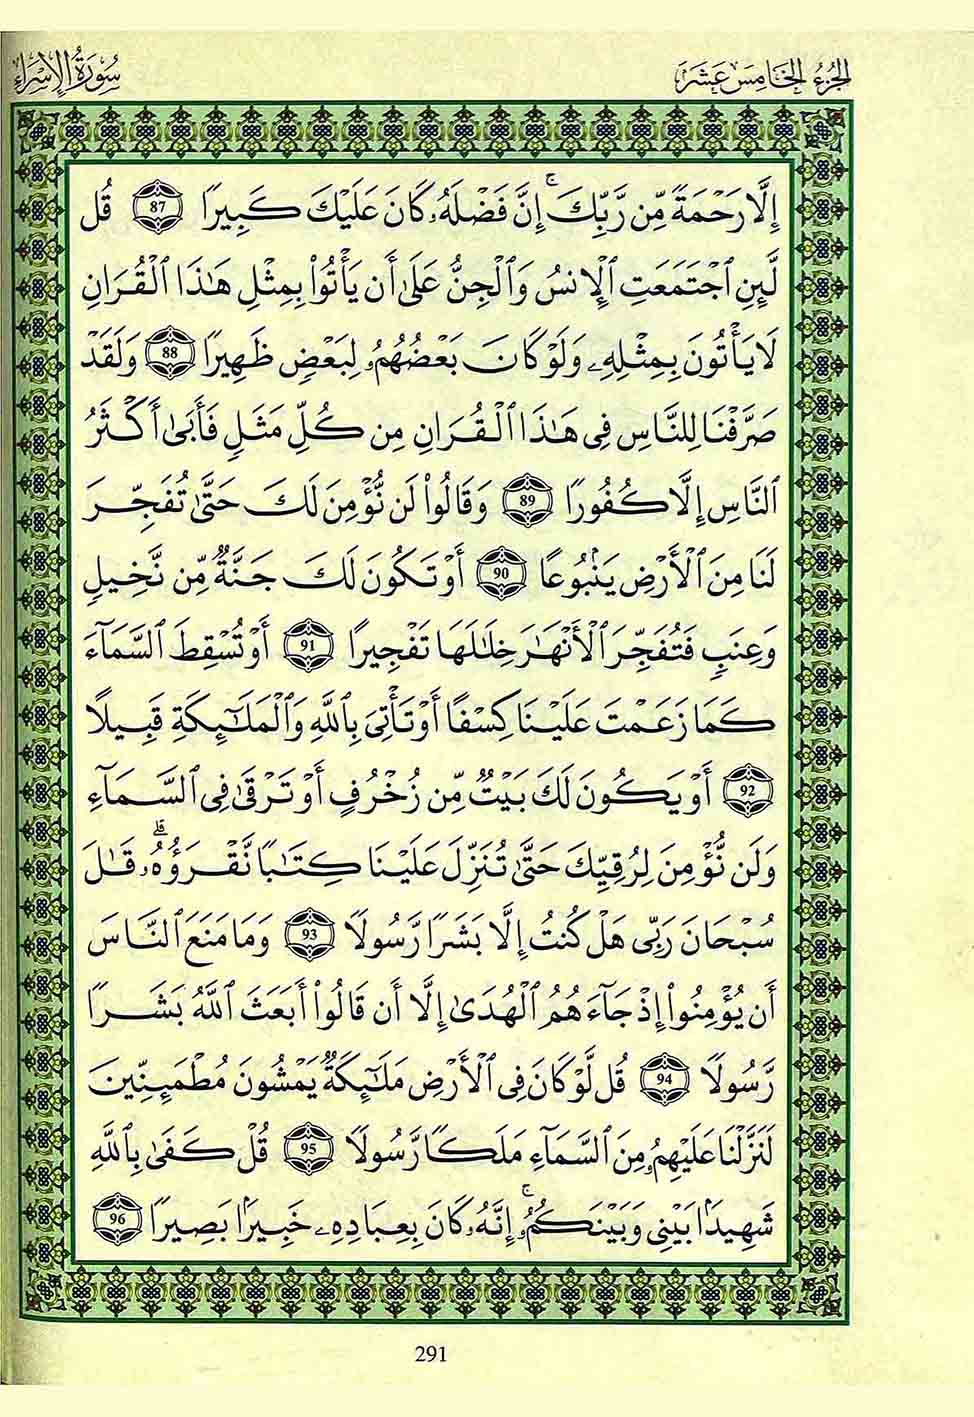 الجُزْءُ الخَامِسَ عَشَرَ
سُورَةُ الإِسْرَاءِ
إِلَّا رَحْمَةً مِّن رَّبِّكَ ۚ إِنَّ فَضْلَهُۥ كَانَ عَلَيْكَ كَبِيرًا 87 قُل
لَّئِنِ ٱجْتَمَعَتِ ٱلْإِنسُ وَٱلْجِنُّ عَلَىٰ أَن يَأْتُوا۟ بِمِثْلِ هَٰذَا ٱلْقُرَانِ
لَا يَأْتُونَ بِمِثْلِهِۦ وَلَوْ كَانَ بَعْضُهُمُۥ لِبَعْضٍ ظَهِيرًا 88 وَلَقَدْ
صَرَّفْنَا لِلنَّاسِ فِى هَٰذَا ٱلْقُرَانِ مِن كُلِّ مَثَلٍ فَأَبَىٰ أَكْثَرُ
ٱلنَّاسِ إِلَّا كُفُورًا 89 وَقَالُوا۟ لَن نُّؤْمِنَ لَكَ حَتَّىٰ تُفَجِّرَ
لَنَا مِنَ ٱلْأَرْضِ يَنۢبُوعًا 90 أَوْ تَكُونَ لَكَ جَنَّةٌ مِّن نَّخِيلٍ
وَعِنَبٍ فَتُفَجِّرَ ٱلْأَنْهَٰرَ خِلَٰلَهَا تَفْجِيرًا 91 أَوْ تُسْقِطَ ٱلسَّمَآءَ
كَمَا زَعَمْتَ عَلَيْنَا كِسْفًا أَوْ تَأْتِىَ بِٱللَّهِ وَٱلْمَلَٰٓئِكَةِ قَبِيلًا
92 أَوْ يَكُونَ لَكَ بَيْتٌ مِّن زُخْرُفٍ أَوْ تَرْقَىٰ فِى ٱلسَّمَآءِ
وَلَن نُّؤْمِنَ لِرُقِيِّكَ حَتَّىٰ تُنَزِّلَ عَلَيْنَا كِتَٰبًا نَّقْرَؤُهُۥ ۗ قَٰلَ
سُبْحَانَ رَبِّى هَلْ كُنتُ إِلَّا بَشَرًا رَّسُولًا 93 وَمَا مَنَعَ ٱلنَّاسَ
أَن يُؤْمِنُوٓا۟ إِذْ جَآءَهُمُ ٱلْهُدَىٰ إِلَّآ أَن قَالُوٓا۟ أَبَعَثَ ٱللَّهُ بَشَرًا
رَّسُولًا 94 قُل لَّوْ كَانَ فِى ٱلْأَرْضِ مَلَٰٓئِكَةٌ يَمْشُونَ مُطْمَئِنِّينَ
لَنَزَّلْنَا عَلَيْهِمُۥ مِنَ ٱلسَّمَآءِ مَلَكًا رَّسُولًا 95 قُلْ كَفَىٰ بِٱللَّهِ
شَهِيدًۢا بَيْنِى وَبَيْنَكُمُۥٓ ۚ إِنَّهُۥ كَانَ بِعِبَادِهِۦ خَبِيرًۢا بَصِيرًا 96
291